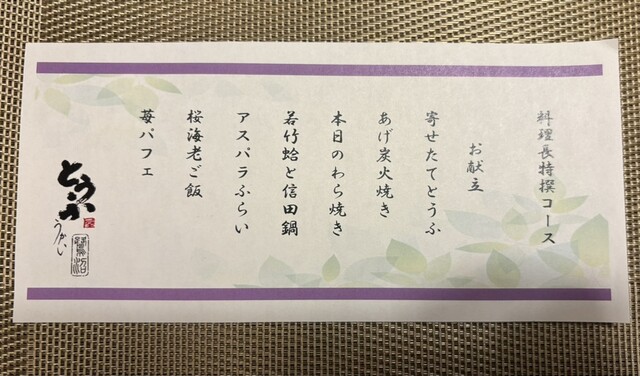 料理長特撰コース
お献立
寄せたてとうふ
あげ炭火焼き
本日のわら焼き
若竹蛤と信田鍋
アスパラふらい
桜海老ご飯
苺パフェ
とうふ
うかい
鷺沼